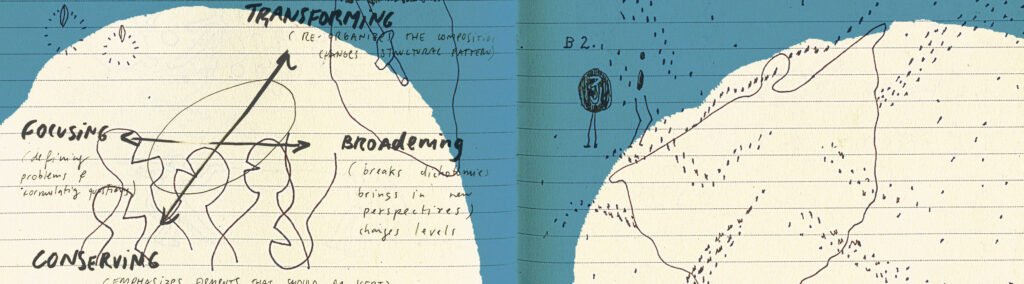 TRANSFORMING
(RE-ORGANIZES THE COMPOSITION
CHANGES STRUCTURAL PATTERN)
FOCUSING
(defining
problems &
formulating questions)
BROADENING
(breaks dichotomies
brings in new
perspectives)
changes levels
CONSERVING
(EMPHASIZES ELEMENTS THAT SHOULD BE KEPT)
B2.
3